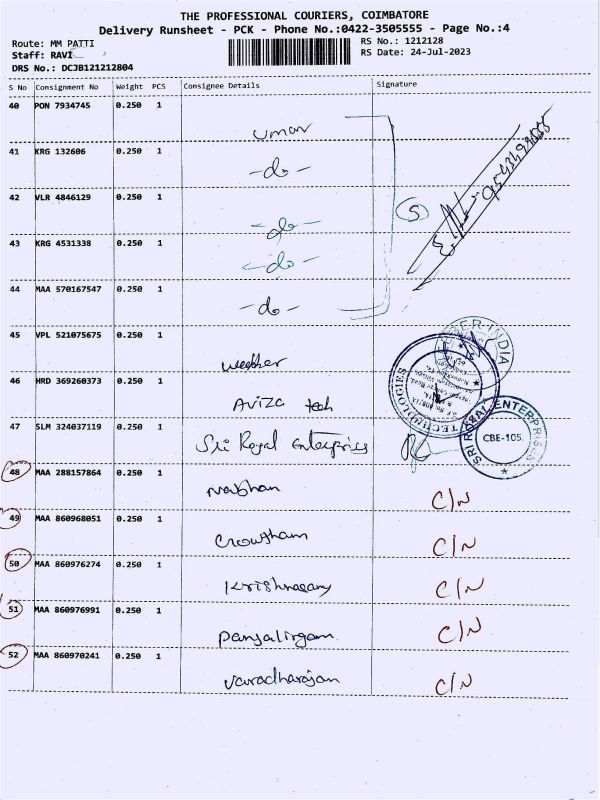 THE PROFESSIONAL COURIERS, COIMBATORE
Delivery Runsheet - PCK - Phone No.:0422-3505555 - Page No.:4
Route: MM PATTI
RS No.: 1212128
Staff: RAVI
RS Date: 24-Jul-2023
DRS No.: DCJB121212804
S No Consignment No Weight PCS Consignee Details Signature
40 PON 7934745 0.250 1
umar
41 KRG 132606 0.250 1
-do-
42 VLR 4846129 0.250 1
-do-
5
43 KRG 4531338 0.250 1
-do-
44 MAA 570167547 0.250 1
-do-
45 VPL 521075675 0.250 1
46 HRD 369260373 0.250 1
Aviza tech
TECHNOLOGIES
47 SLM 324037119 0.250 1
Sri Royal enterprises
SRI ROYAL ENTERPRISES
CBE-105.
48 MAA 288157864 0.250 1
Nabhan C/N
49 MAA 860968051 0.250 1
Crowtham C/N
50 MAA 860976274 0.250 1
Krishnasamy C/N
51 MAA 860976991 0.250 1
Panjalingam C/N
52 MAA 860970241 0.250 1
varadharajan C/N